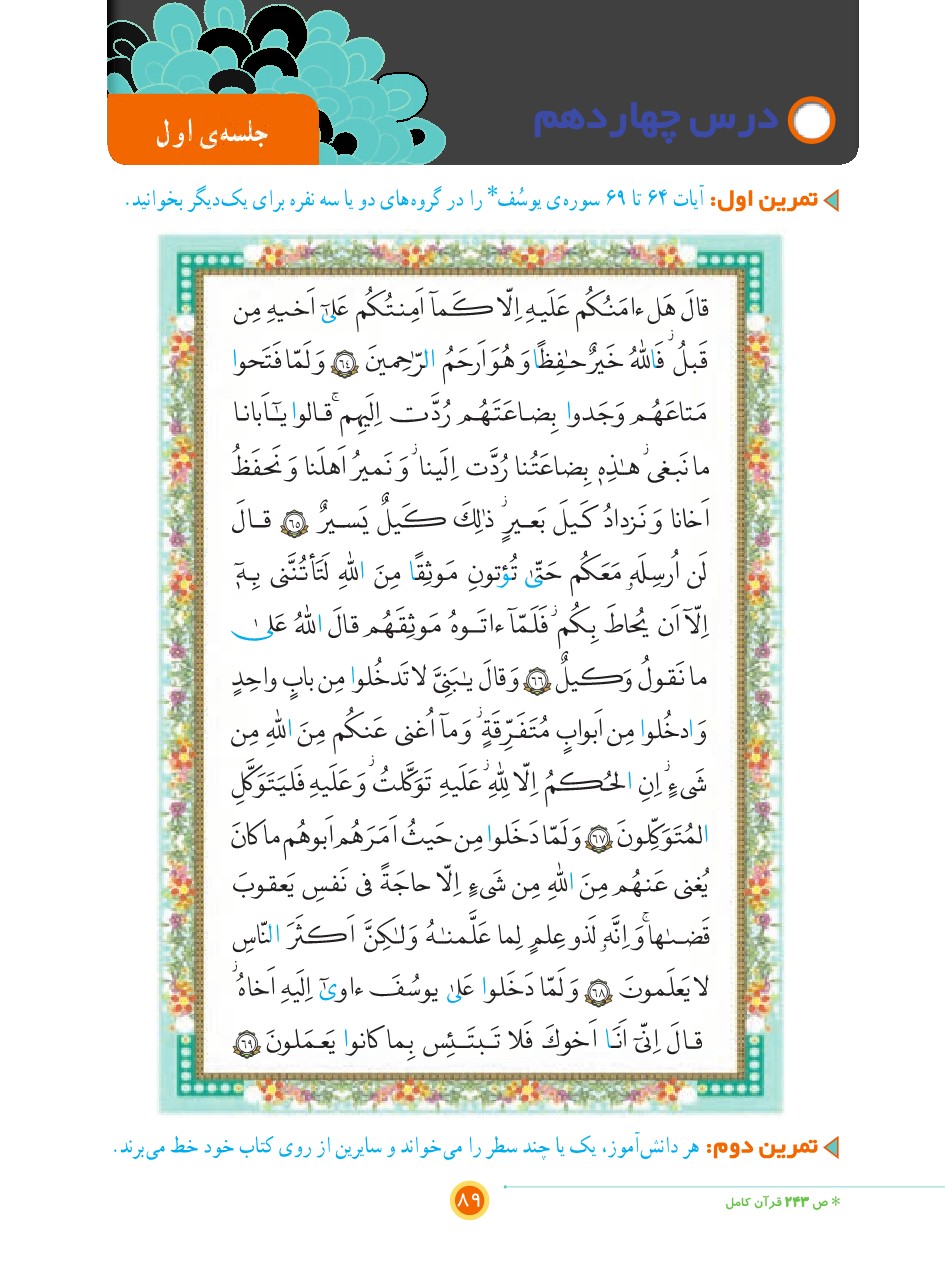 درس چهاردهم
جلسه‌ی اول
تمرین اول: آیات ۶۴ تا ۶۹ سوره‌ی یوسُف* را در گروه‌های دو یا سه نفره برای یک‌دیگر بخوانید.
قالَ هَل ءامَنُكُم عَلَيهِ اِلّا كَمآ اَمِنتُكُم عَلىٰٓ اَخيهِ مِن
قَبلُ ۖ فَاللّٰهُ خَيرٌ حٰفِظًا وَ هُوَ اَرحَمُ الرّٰحِمينَ ﴿٦٤﴾ وَ لَمّا فَتَحوا
مَتاعَهُم وَجَدوا بِضاعَتَهُم رُدَّت اِلَيهِم ۖ قالوا يٰٓاَبانا
ما نَبغى ۖ هٰذِهٖ بِضاعَتُنا رُدَّت اِلَينا ۖ وَ نَميرُ اَهلَنا وَ نَحفَظُ
اَخانا وَ نَزدادُ كَيلَ بَعيرٍ ۖ ذٰلِكَ كَيلٌ يَسيرٌ ﴿٦٥﴾ قالَ
لَن اُرسِلَهٗ مَعَكُم حَتّىٰ تُؤتونِ مَوثِقًا مِنَ اللّٰهِ لَتَأتُنَّنى بِهٖٓ
اِلّآ اَن يُحاطَ بِكُم ۖ فَلَمّآ ءاتَوهُ مَوثِقَهُم قالَ اللّٰهُ عَلىٰ
ما نَقولُ وَكيلٌ ﴿٦٦﴾ وَ قالَ يٰبَنِىَّ لا تَدخُلوا مِن بابٍ واحِدٍ
وَ ادخُلوا مِن اَبوابٍ مُتَفَرِّقَةٍ ۖ وَ مآ اُغنى عَنكُم مِنَ اللّٰهِ مِن
شَىءٍ ۖ اِنِ الحُكمُ اِلّا لِلّٰهِ ۖ عَلَيهِ تَوَكَّلتُ ۖ وَ عَلَيهِ فَليَتَوَكَّلِ
المُتَوَكِّلونَ ﴿٦٧﴾ وَ لَمّا دَخَلوا مِن حَيثُ اَمَرَهُم اَبوهُم ما كانَ
يُغنى عَنهُم مِنَ اللّٰهِ مِن شَىءٍ اِلّا حاجَةً فى نَفسِ يَعقوبَ
قَضٰىها ۚ وَ اِنَّهٗ لَذو عِلمٍ لِما عَلَّمنٰهُ وَ لٰكِنَّ اَكثَرَ النّاسِ
لا يَعلَمونَ ﴿٦٨﴾ وَ لَمّا دَخَلوا عَلىٰ يوسُفَ ءاوىٰٓ اِلَيهِ اَخاهُ ۖ
قالَ اِنّىٓ اَنَا اَخوكَ فَلا تَبتَئِس بِما كانوا يَعمَلونَ ﴿٦٩﴾
تمرین دوم: هر دانش‌آموز، یک یا چند سطر را می‌خواند و سایرین از روی کتاب خود خط می‌برند.
* ص ۲۴۳ قرآن کامل
۸۹